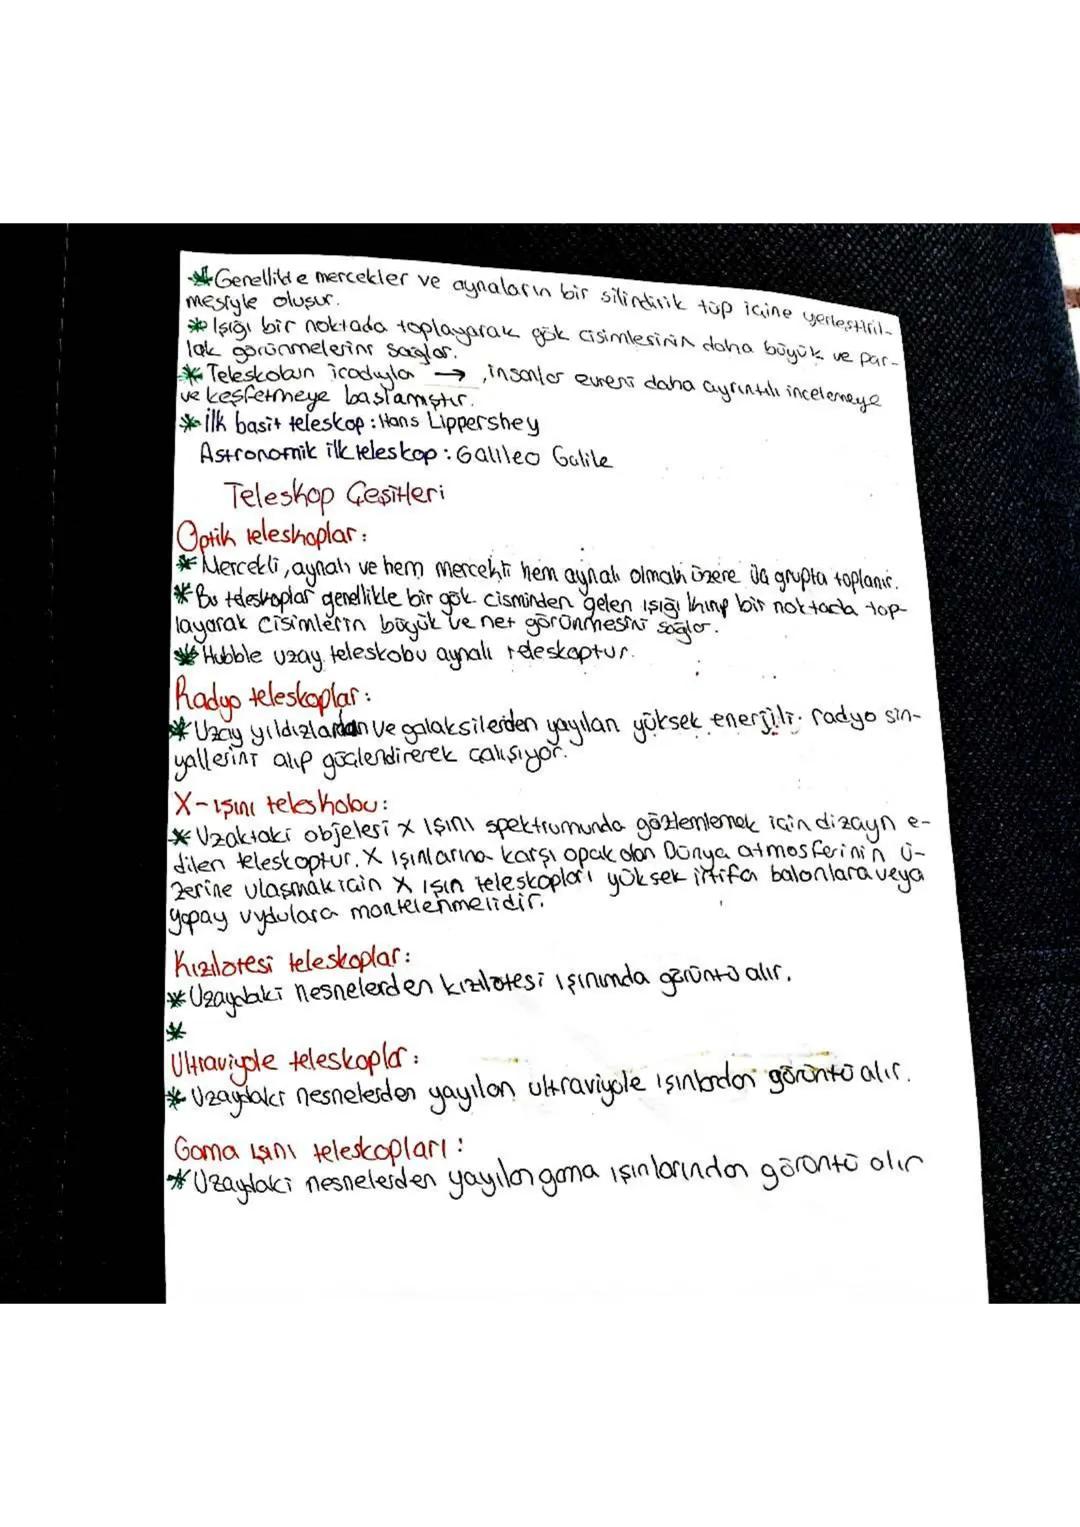 * Genellikle mercekler ve aynaların bir silindirik tüp içine yerleştiril-
mesiyle oluşur.
* Işığı bir noktada toplayarak gök cisimlerinin daha büyük ve par-
lak görünmelerini sağlar.
* Teleskobun icadıyla → , insanlar evreni daha ayrıntılı incelemeye
ve keşfetmeye başlamıştır.
* İlk basit teleskop : Hans Lippershey
Astronomik ilk teleskop : Galileo Galile
Teleskop Çeşitleri
Optik teleskoplar :
* Mercekli, aynalı ve hem mercekli hem aynalı olmak üzere üç grupta toplanır.
* Bu teleskoplar genellikle bir gök cisminden gelen ışığı kırıp bir noktada top-
layarak cisimlerin büyük ve net görünmesini sağlar.
* Hubble uzay teleskobu aynalı teleskoptur.
Radyo teleskoplar :
* Uzay yıldızlardan ve galaksilerden yayılan yüksek enerjili radyo sin-
yallerini alıp güçlendirerek çalışıyor.
X-ışını teleskobu :
* Uzaktaki objeleri X ışını spektrumunda gözlemlemek için dizayn e-
dilen teleskoptur. X ışınlarına karşı opak olan Dünya atmosferinin ü-
zerine ulaşmak için X ışın teleskopları yüksek irtifa balonlara veya
yapay uydulara montelenmelidir.
Kızılötesi teleskoplar :
* Uzaydaki nesnelerden kızılötesi ışınımda görüntü alır.
*
Ultraviyole teleskoplar :
* Uzaydaki nesnelerden yayılan ultraviyole ışınlardan görüntü alır.
Gama ışını teleskopları :
* Uzaydaki nesnelerden yayılan gama ışınlarından görüntü alır